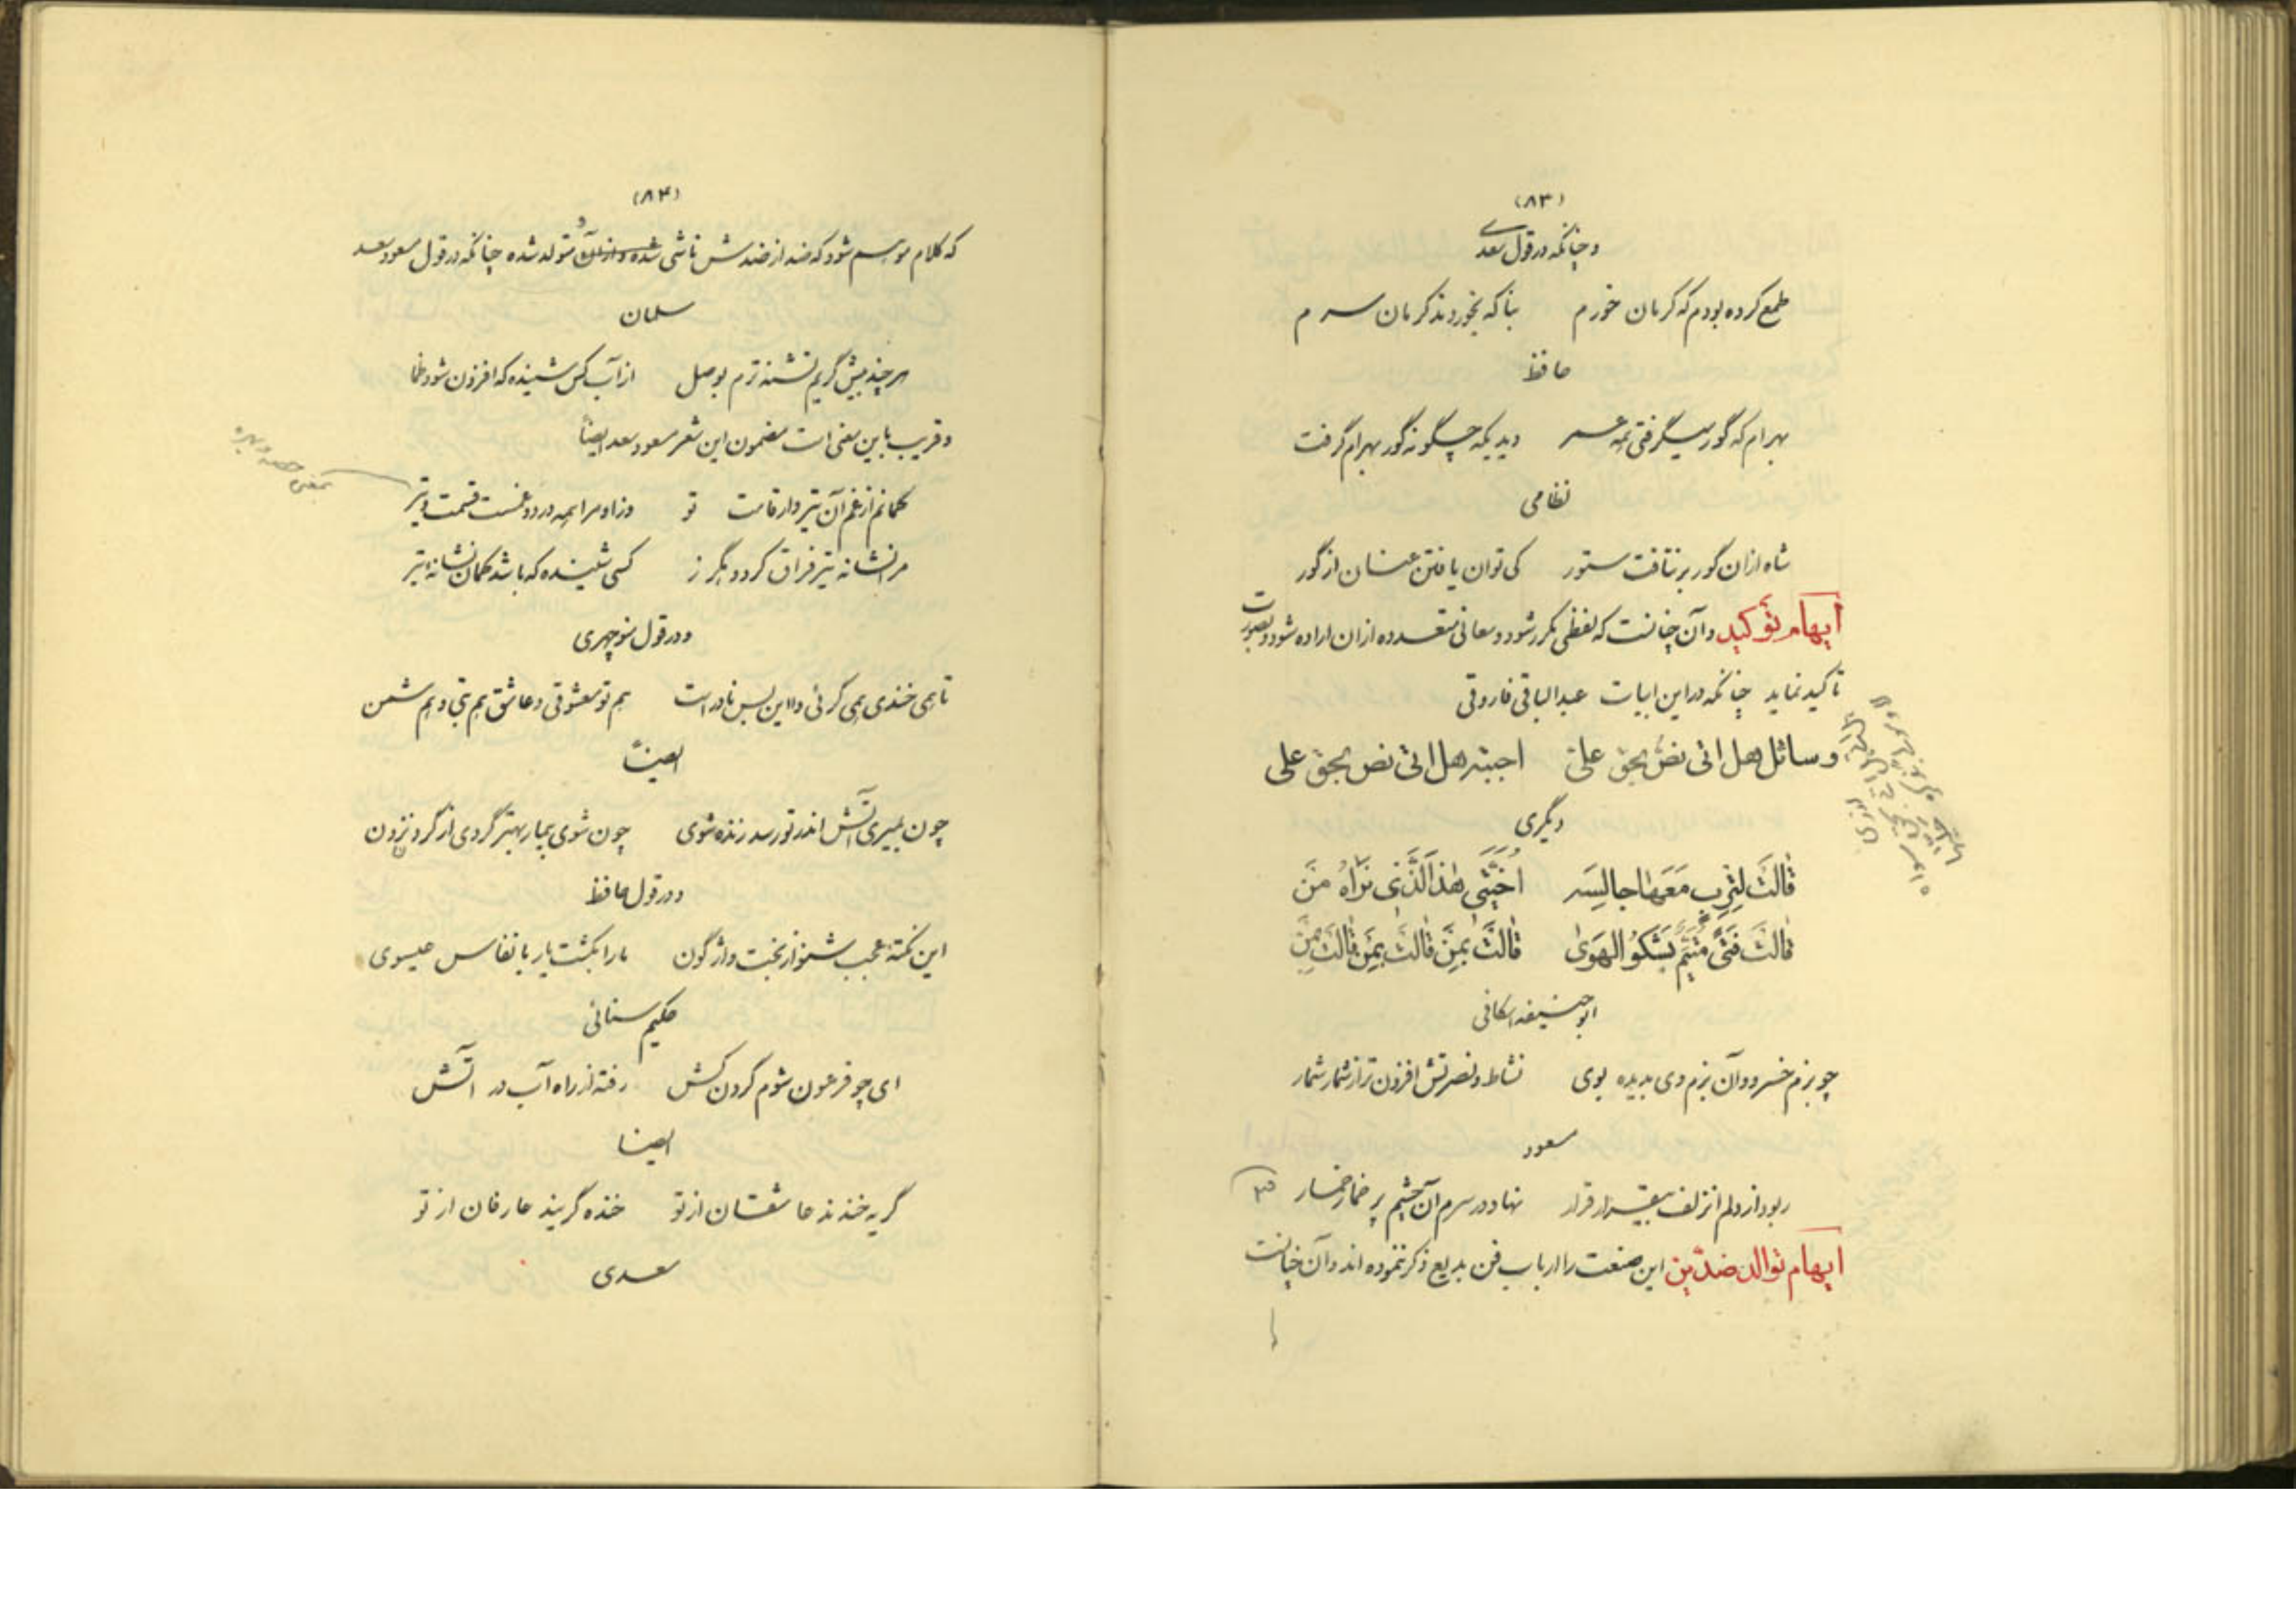 (۸۳)
و چنانکه در قول سعدی
طمع کرده بودم که کرمان خورم بناکه بخوردند کرمان سرم
حافظ
بهرام که گور میگرفتی همه عمر دیدیکه چگونه گور بهرام گرفت
نظامی
شاه ازان گور بر نتافت ستور کی توان یافتن عنان از گور
ایهام توکید و آن چنانست که لفظی مکرر شود و معانی متعدده ازان اراده شود و بصورت
تاکید نماید چنانکه در این ابیات عبد الباقی فاروقی
وسائل هل اتی نص بحق علی اجبته هل اتی نص بحق علی
دیگری
قالت لترب معها جالسه اختی هذا الذی نراه من
قالت فتی متیم یشکو الهوی قالت بمن قالت بمن قالت بمن
ابو حنیفه اسکافی
چو بزم خسرو و آن بزم وی بدیده بوی نشاط و نصرتش افزون تر از شمار شمار
مسعود
ربود از دلم انزلف بیقرار قرار نهاد در سرم آن چشم پر خمار خمار
ایهام توالد ضدین این صنعت را ارباب فن بدیع ذکر ننموده اند و آن چنانست
(۸۴)
که کلام موهم شود که ضد از ضدش ناشی شده و ازان متولد شده چنانکه در قول مسعود سعد
سلمان
هر چند بیش گریم تشنه ترم بوصل از آب کس شنیده که افزون شود ظما
و قریب باین معنی است مضمون این شعر مسعود سعد ایضاً
کمانم از غم آن تیر وار قامت تو وزاو مرا همه درد و غمست قسمت و تیر
مرا نشانه تیر فراق کرد و هگرز کسی شنیده که باشد کمان نشانه تیر
بمعنی حصه و بهره
و در قول منوچهری
تا همی خندی همی گرئی و این بس نادر است هم تو معشوقی و عاشق هم بتی و هم شمن
ایضاً
چون بمیری آتش اندر تو رسد زنده شوی چون شوی بیمار بهتر گردی از گردن زدن
و در قول حافظ
این نکته عجب شنو از بخت واژگون ما را بکشت یار بانفاس عیسوی
حکیم سنائی
ای چو فرعون شوم گردن کش رفته از راه آب در آتش
ایضا
گریه خندند عاشقان از تو خنده گریند عارفان از تو
سعدی